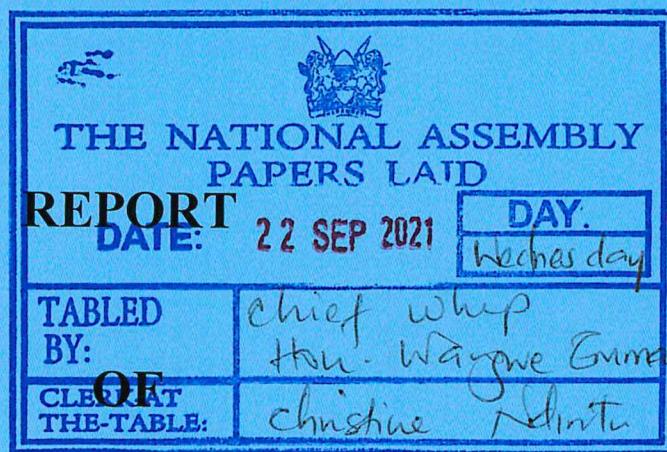 THE NATIONAL ASSEMBLY
PAPERS LAID
REPORT
DATE: 22 SEP 2021
DAY:
Wednesday
TABLED BY:
chief whip
Hon. Wangwe Emma
OF
CLERK AT
THE-TABLE:
Christine